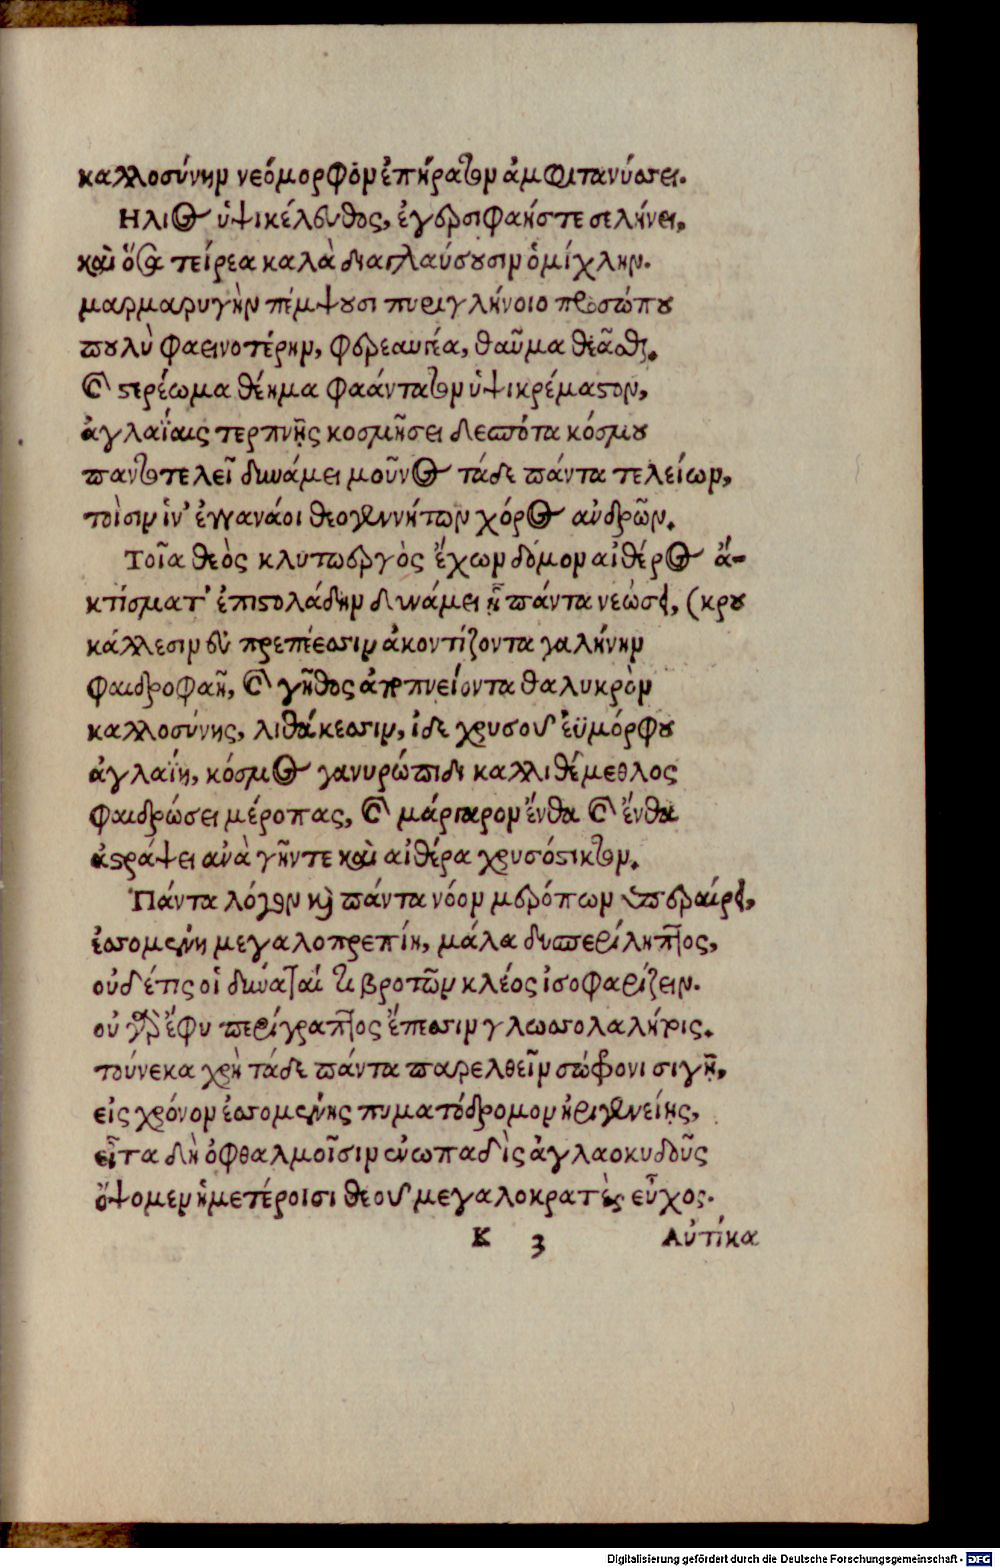 καλλοσύνην νεόμορφον ἐπήρατον ἀμφιτανύσσει.
Ηλιος ὑψικέλευθος, ἐγερσιφαής τε σελήνει,
καὶ ὅσα τείρεα καλὰ διαγλαύσουσιν ὁμίχλην.
μαρμαρυγὴν πέμψουσι πυριγλήνοιο προσώπου
πουλὺ φαεινοτέρην, φερεαυγέα, θαῦμα θεᾶσθαι.
καὶ στερέωμα θέημα φαάντατον ὑψικρέμαστον,
ἀγλαΐαις τερπνῇς κοσμήσει δεσπότα κόσμου
παντοτελεῖ δυνάμει μοῦνος τάδε πάντα τελείων,
τοὶσιν ἱν' ἐγγανάοι θεογεννήτων χόρος ἀνδρῶν.
Τοῖα θεὸς κλυτωεργὸς ἔχων δόμον αἰθέρος ἄ-
κτίσματ' ἐπιστολάδην δυνάμει ᾗ πάντα νεώσει, (κρου
κάλλεσιν εὖ πρεπέεσσιν ἀκοντίζοντα γαλήνην
φαιδροφαῆ, καὶ γῆθος ἀποπνείοντα θαλυκρὸν
καλλοσύνης, λιθάκεσσιν, ἰδὲ χρυσοῦ ἐϋμόρφου
ἀγλαΐη, κόσμος γανυρώπιδι καλλιθέμεθλος
φαιδρώσει μέροπας, καὶ μάργαρον ἔνθα καὶ ἔνθα
ἀστράψει ἀνὰ γῆν τε καὶ αἰθέρα χρυσόστικτον.
Πάντα λόγον καὶ πάντα νόον μερόπων ὑπεραίρει,
ἐσσομένη μεγαλοπρεπίη, μάλα δυσπερίληπτος,
οὐδέ τις οἱ δύναται τι βροτῶν κλέος ἰσοφαρίζειν.
οὐ γὰρ ἔφυ περίγραπτος ἔπεσσιν γλωσσολαλήτοις.
τούνεκα χρὴ τάδε πάντα παρελθεῖν σώφρονι σιγῇ,
εἰς χρόνον ἐσσομένης πυματόδρομον ἠριγενείης,
εἶτα δὴ ὀφθαλμοῖσιν ἐνωπαδὶς ἀγλαοκυδοῦς
ὀψομεν ἡμετέροισι θεοῦ μεγαλοκρατὲς εὖχος.
K 3 Αὐτίκα
Digitalisierung gefördert durch die Deutsche Forschungsgemeinschaft - DFG